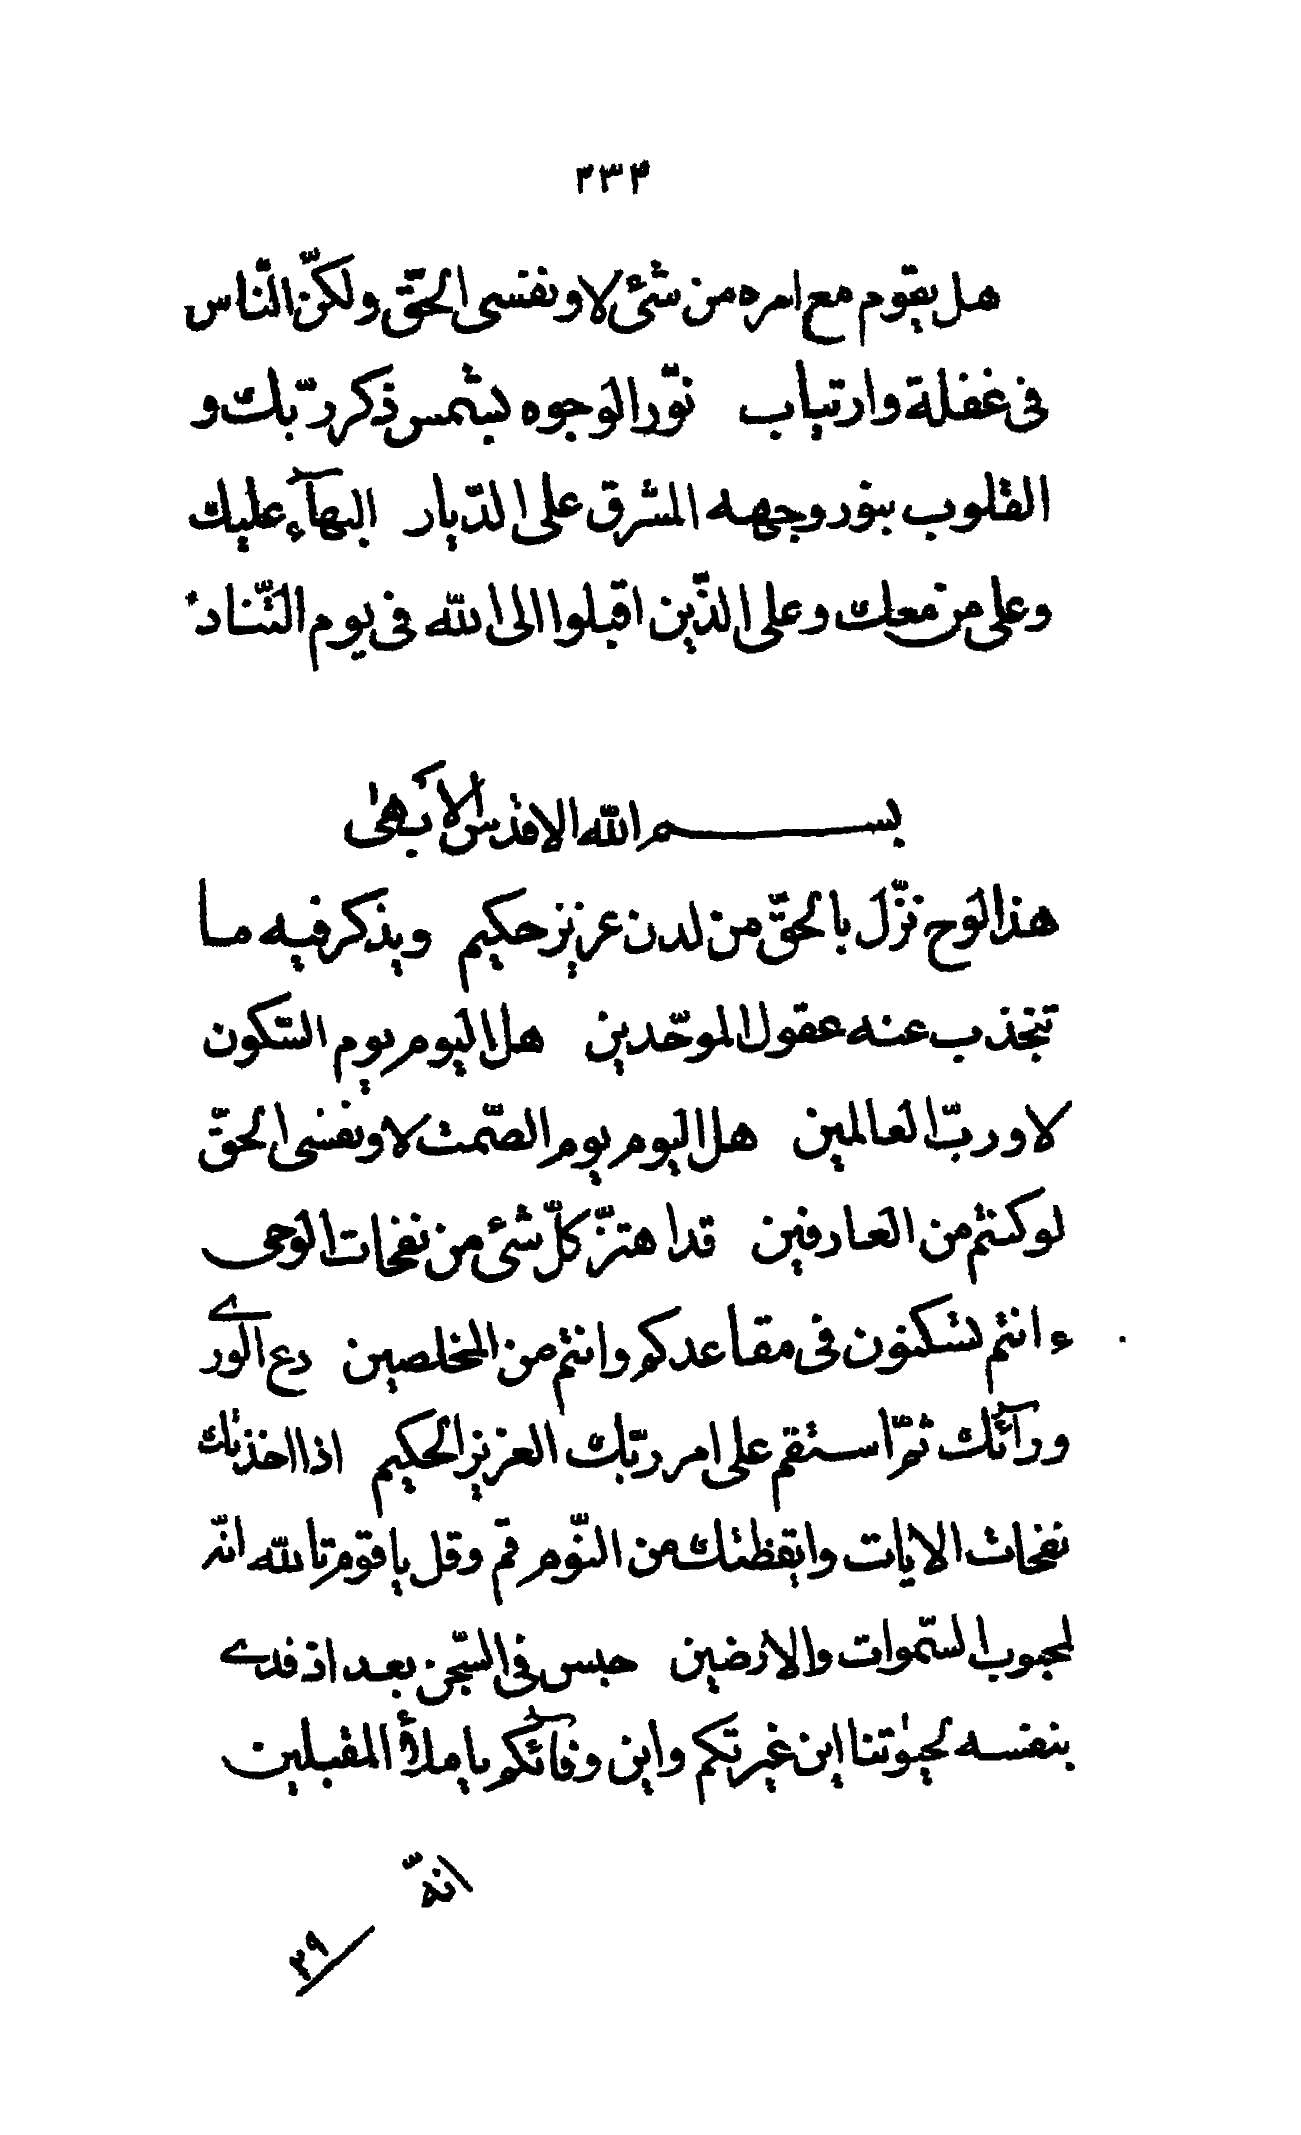 ٢٣٣
هل يقوم مع امره من شئ لا ونفسى الحقّ ولكنّ النّاس
فى غفلة وارتياب نوّر الوجوه بشمس ذكر ربّك و
القلوب بنور وجهه المشرق على الدّيار البهآء عليك
وعلى من معك وعلى الذّين اقبلوا الى الله فى يوم التّناد
بسم الله الاقدس الأبهى
هذا لوح نزّل بالحقّ من لدن عزيز حكيم ويذكر فيه ما
تنجذب عنه عقول الموحّدين هل اليوم يوم السّكون
لا وربّ العالمين هل اليوم يوم الصّمت لا ونفسى الحقّ
لو كنتم من العارفين قد اهتزّ كلّ شئ من نفحات الوحى
ءانتم تسكنون فى مقاعدكم وانتم من المخلصين دع الورى
ورآئك ثمّ استقم على امر ربّك العزيز الحكيم اذا اخذتك
نفحات الايات وايقظتك من النّوم قم وقل يا قوم تالله انّه
لمحبوب السّموات والارضين حبس فى السّجن بعد اذ فدى
بنفسه لحيوتنا اين غيرتكم واين وفائكم يا ملأ المقبلين
انّه
٣٩